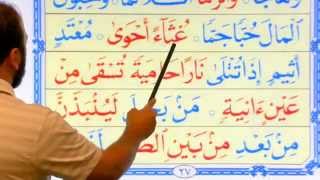 الْمَالَ حُبًّا جَمًّا * غُثَآءً أَحْوَى * مُعْتَدٍ
أَثِيمٍ إِذَا تُتْلَى نَارًا حَامِيَةً تُسْقَى مِنْ
عَيْنٍ ءَانِيَةٍ * مَنْ بَخِلَ لَيُنْبَذَنَّ
مِنْ بَعْدِ مِنْ بَيْنِ
٢٧